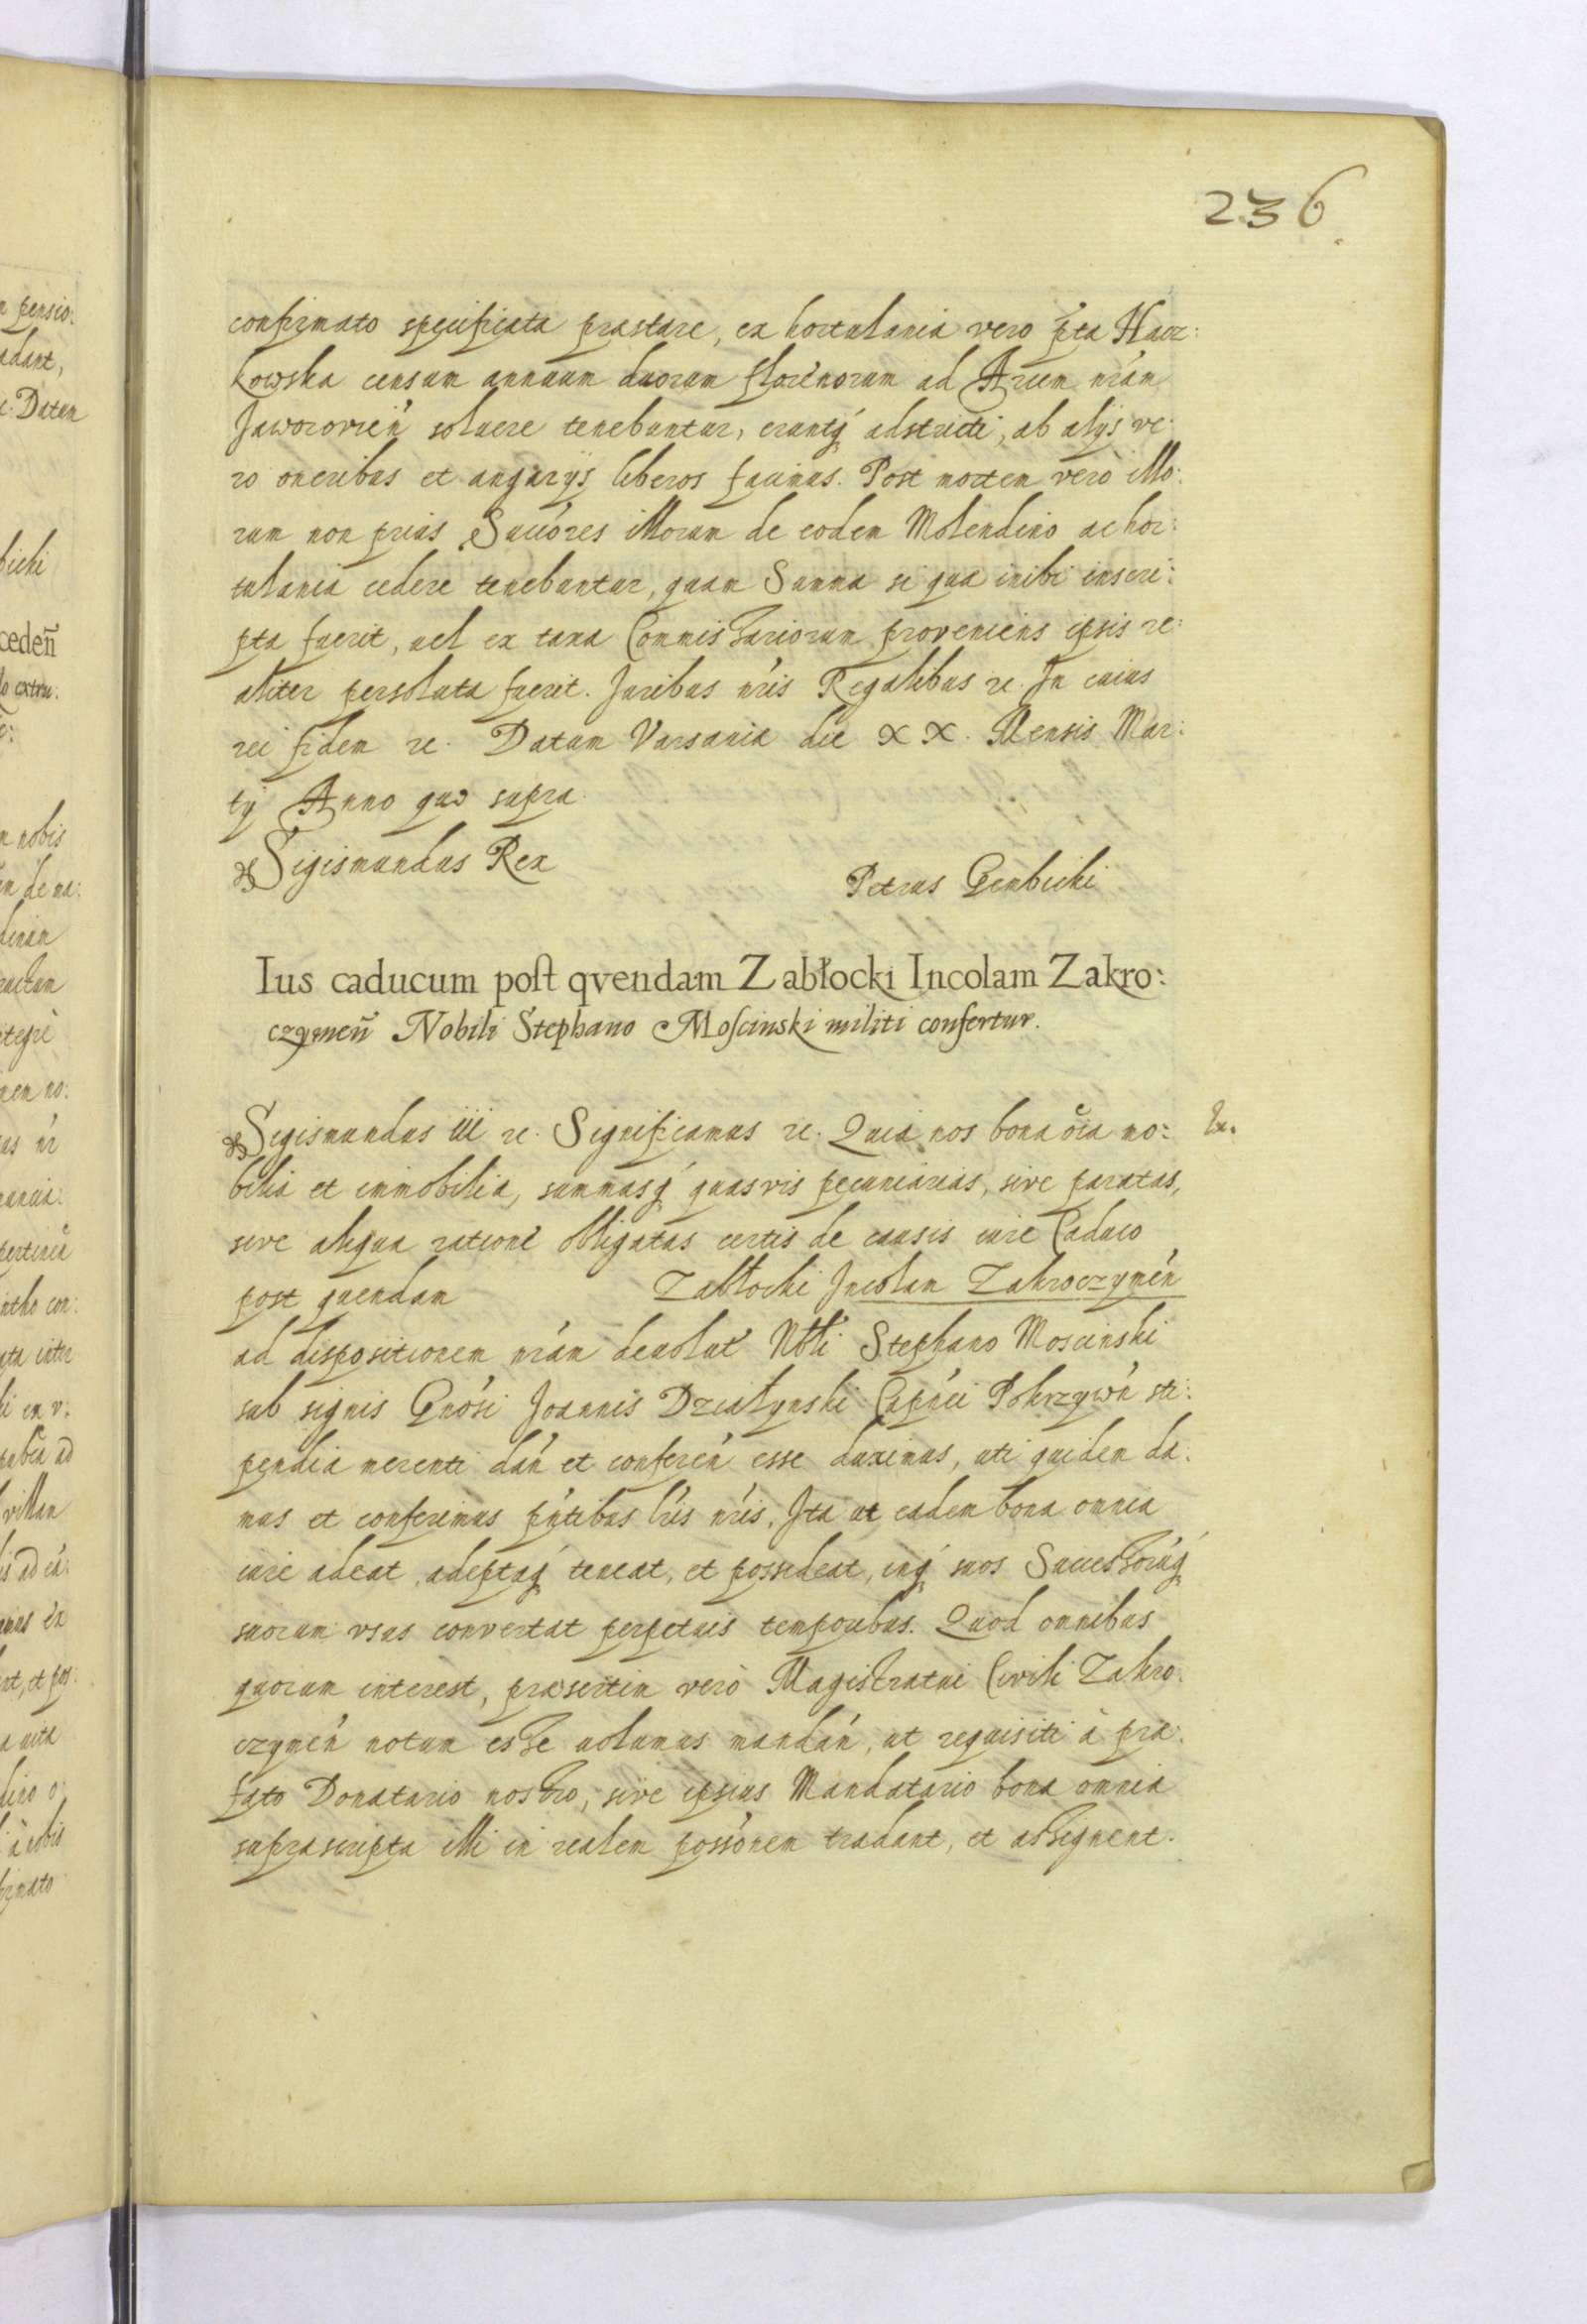 236
confirmato specificata præstare, ex hortulania vero pta Hacz:
kowska censum annuum duorum florenorum ad Arcem nrám
Jaworovień soluere tenebuntur, eruntq́ adstricti, ab alijs ve:
ro oneribus et angarijs liberos facimus. Post mortem verò illo:
rum non prius Succóres illorum de eodem Molendino ac hor:
tulania cedere tenebuntur, quam Summa si qua inibi inscri:
pta fuerit, uel ex taxa Commissariorum proveniens ipsis re:
aliter persoluta fuerit. Juribus nris Regalibus etc. In cuius
rei fidem etc. Datum Varsauiæ die XX. Mensis Mar:
tij Anno quo supra.
Sigismundus Rex
Petrus Gembicki
Ius caducum post qvendam Zabłocki Incolam Zakro:
czymeñ Nobili Stephano Moscinski militi confertur.
Sigismundus III etc. Significamus etc. Quia nos bona oĩa mo:
bilia et immobilia, summasq́ quasvis pecuniarias, sive paratas,
sive aliqua ratione obligatas certis de causis iure Caduco
post quendam Zabłocki Incolam Zakroczymeń
ad dispositionem nrám deuolut Nbli Stephano Moscinski
sub signis Gnósi Joannis Działynski Capnéi Pokrzywń sti:
pendia merenti dań et confereń esse duximus, uti quidem da:
mus et conferimus pńtibus lris nris. Ita ut eadem bona omnia
iure adeat, adeptaq́ teneat, et possideat, inq́ suos Successorúq́
suorum vsus convertat perpetuis temporibus. Quod omnibus
quorum interest, præsertim verò Magistratui Civili Zakro:
czymeń notum esse uolumus mandań, ut requisiti à præ:
fato Donatario nostro, sive ipsius Mandatario bona omnia
suprascripta illi in realem possónem tradant, et assignent.